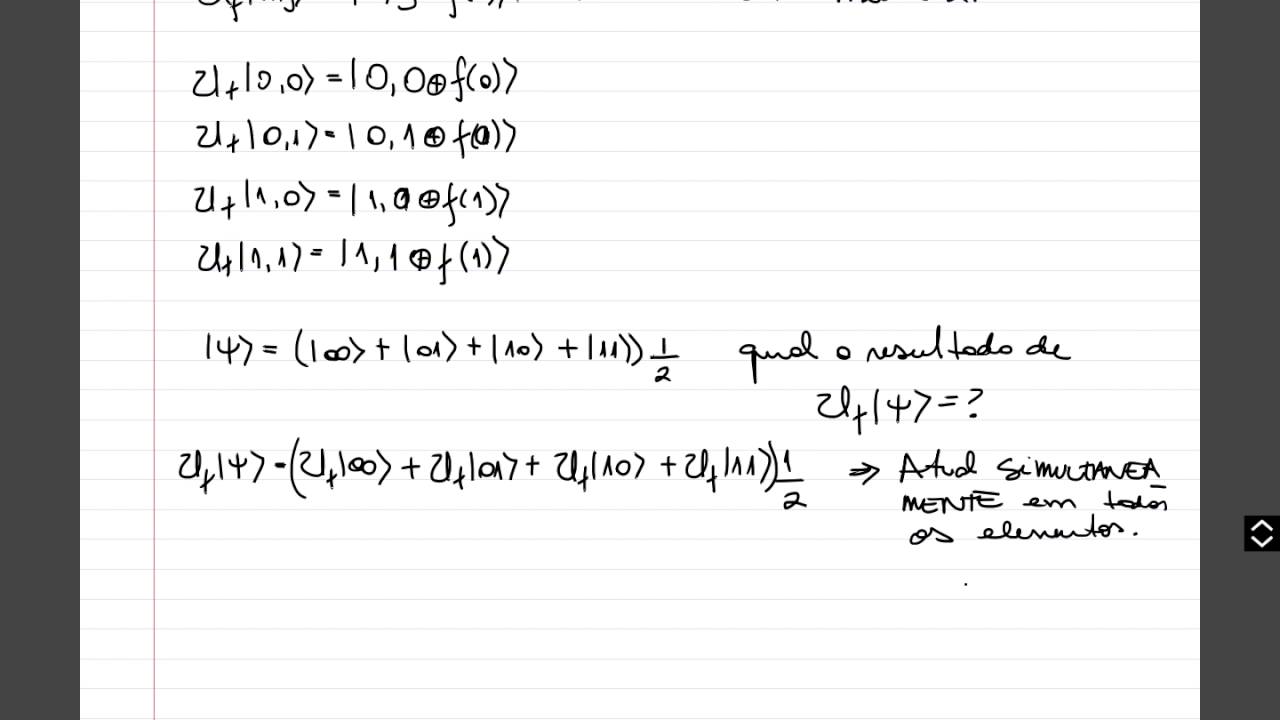 U_f|0,0⟩ = |0, 0⊕f(0)⟩
U_f|0,1⟩ = |0, 1⊕f(0)⟩
U_f|1,0⟩ = |1, 0⊕f(1)⟩
U_f|1,1⟩ = |1, 1⊕f(1)⟩
|ψ⟩ = (|00⟩ + |01⟩ + |10⟩ + |11⟩) 1/2 qual o resultado de
U_f|ψ⟩ = ?
U_f|ψ⟩ = (U_f|00⟩ + U_f|01⟩ + U_f|10⟩ + U_f|11⟩) 1/2 ⇒ Atua SIMULTANEA
MENTE em todos
os elementos.